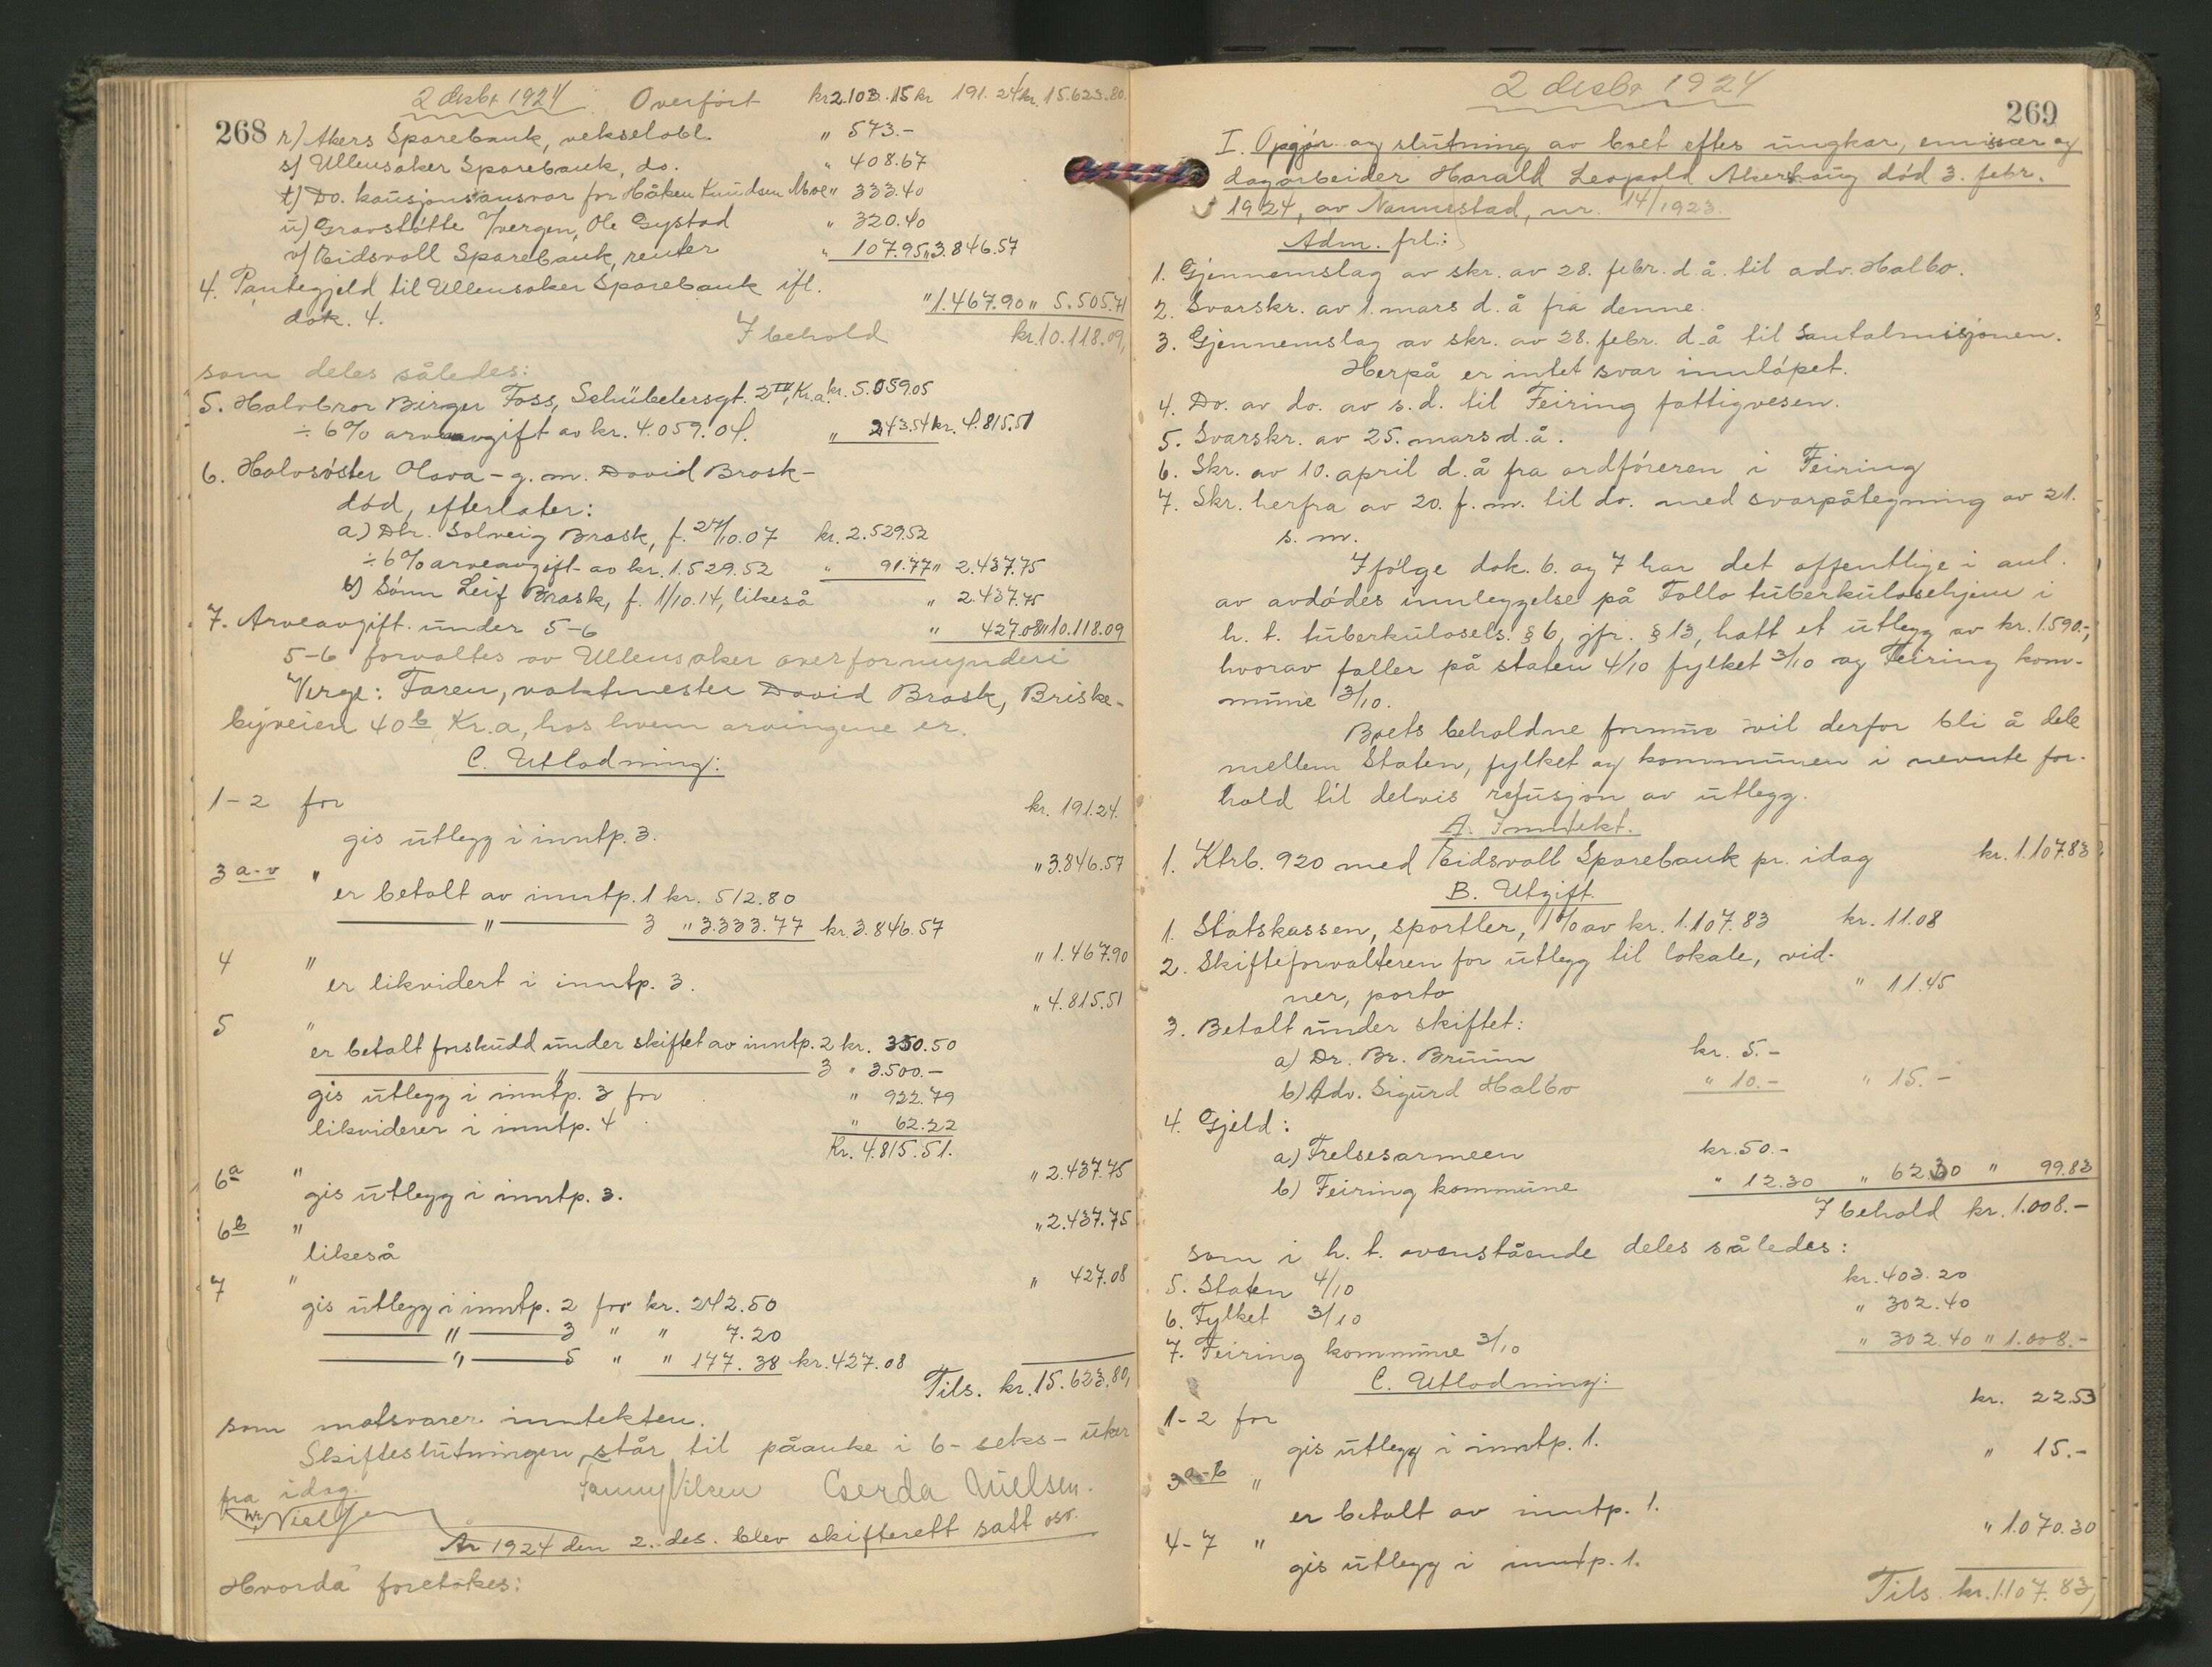 2 desbr 1924 Overført kr 2.103.15 kr 191.24 kr. 15.623.80.
268 r) Akers Sparebank, vekselobl. " 573.-
s) Ullensaker Sparebank, do. " 408.67
t) Do. kausjonsansvar for Håken Knudsen Moe " 333.40
u) Gravstøtte v/vergen, Ole Gystad " 320.40
v) Eidsvoll Sparebank, renter " 107.95 " 3.846.57
4. Pantegjeld til Ullensaker Sparebank ifl.
dok. 4. " 1.467.90 " 5.505.71
I behold kr. 10.118.09,
som deles således:
5. Halvbror Birger Foss, Schübelersgt. 2 IV, Kr.a. kr. 5.059.05
÷ 6% arveavgift av kr. 4.059.04. " 243.54 kr. 4.815.51
6. Halvsøster Olava - g. m. David Brask -
død, efterlater:
a) Dtr. Solveig Brask, f. 24/10.07 kr. 2.529.52
÷ 6% arveavgift av kr. 1.529.52 " 91.77 " 2.437.75
b) Sønn Leif Brask, f. 1/10.14, likeså " 2.437.75
7. Arveavgift under 5-6 " 427.08 " 10.118.09
5-6 forvaltes av Ullensaker overformynderi
Verge: Faren, vaktmester David Brask, Briske-
byveien 40 b Kr.a, hos hvem arvingene er.
C. Utlodning:
1-2 for kr. 191.24.
gis utlegg i inntp. 3.
3 a-v " " 3.846.57
er betalt av inntp. 1 kr. 512.80
" 3 " 3.333.77 kr. 3.846.57
4 " " 1.467.90
er likvidert i inntp. 3.
5 " " 4.815.51
er betalt forskudd under skiftet av inntp. 2 kr. 330.50
" 3 " 3.500.-
gis utlegg i inntp. 3 for " 922.79
likviderer i inntp. 4 " 62.22
Kr. 4.815.51.
6 a " " 2.437.75
gis utlegg i inntp. 3.
6 b " " 2.437.75
likeså
7 " " 427.08
gis utlegg i inntp. 2 for kr. 242.50
" 3 " " 7.20
" 5 " " 177.38 kr. 427.08
Tils. kr. 15.623.80,
som motsvarer inntekten.
Skifteslutningen står til påanke i 6- seks - uker
fra idag.
Fanny Nilsen Gerda Nielsen.
Nielsen
År 1924 den 2. des. blev skifterett satt osv.
Hvorda foretokes:
2 desbr 1924
269
I. Opgjør og slutning av boet efter ungkar, emissær og
dagarbeider Harald Leopold Akershaug død 3. febr.
1924, av Nannestad, nr. 14/1923.
Adm. frl.:
1. Gjennemslag av skr. av 28. febr. d.å. til adv. Halbo.
2. Svarskr. av 1. mars d. å fra denne.
3. Gjennemslag av skr. av 28. febr. d.å til Santalmisjonen.
Herpå er intet svar innløpet.
4. Do. av do. av s.d. til Feiring fattigvesen.
5. Svarskr. av 25. mars d.å.
6. Skr. av 10. april d.å fra ordføreren i Feiring
7. Skr. herfra av 20. f. m. til do. med svarpåtegning av 21.
s. m.
Ifølge dok. 6. og 7 har det offentlige i anl.
av avdødes innleggelse på Follo tuberkulosehjem i
h. t. tuberkulosels. § 6, jfr. § 13, hatt et utlegg av kr. 1.590.-,
hvorav faller på staten 4/10 fylket 3/10 og Feiring kom-
mune 3/10.
Boets beholdne formue vil derfor bli å dele
mellem Staten, fylket og kommunen i nevnte for-
hold til delvis refusjon av utlegg.
A. Inntekt.
1. Ktrb. 920 med Eidsvoll Sparebank pr. idag kr. 1.107.83
B. Utgift.
1. Statskassen, sportler, 1% av kr. 1.107.83 kr. 11.08
2. Skifteforvalteren for utlegg til lokale, vid-
ner, porto " 11.45
3. Betalt under skiftet:
a) Dr. Br. Bruun kr. 5.-
b) Adv. Sigurd Halbo " 10.- " 15.-
4. Gjeld:
a) Frelsesarmeen kr. 50.-
b) Feiring kommune " 12.30 " 62.30 " 99.83
I behold kr. 1.008.-
som i h. t. ovenstående deles således:
5. Staten 4/10 kr. 403.20
6. Fylket 3/10 " 302.40
7. Feiring kommune 3/10 " 302.40 " 1.008.-
C. Utlodning:
1-2 for kr. 22.53
gis utlegg i inntp. 1.
3 a-b " " 15.-
er betalt av inntp. 1.
4-7 " " 1.070.30
gis utlegg i inntp. 1.
Tils. kr. 1.107.83,